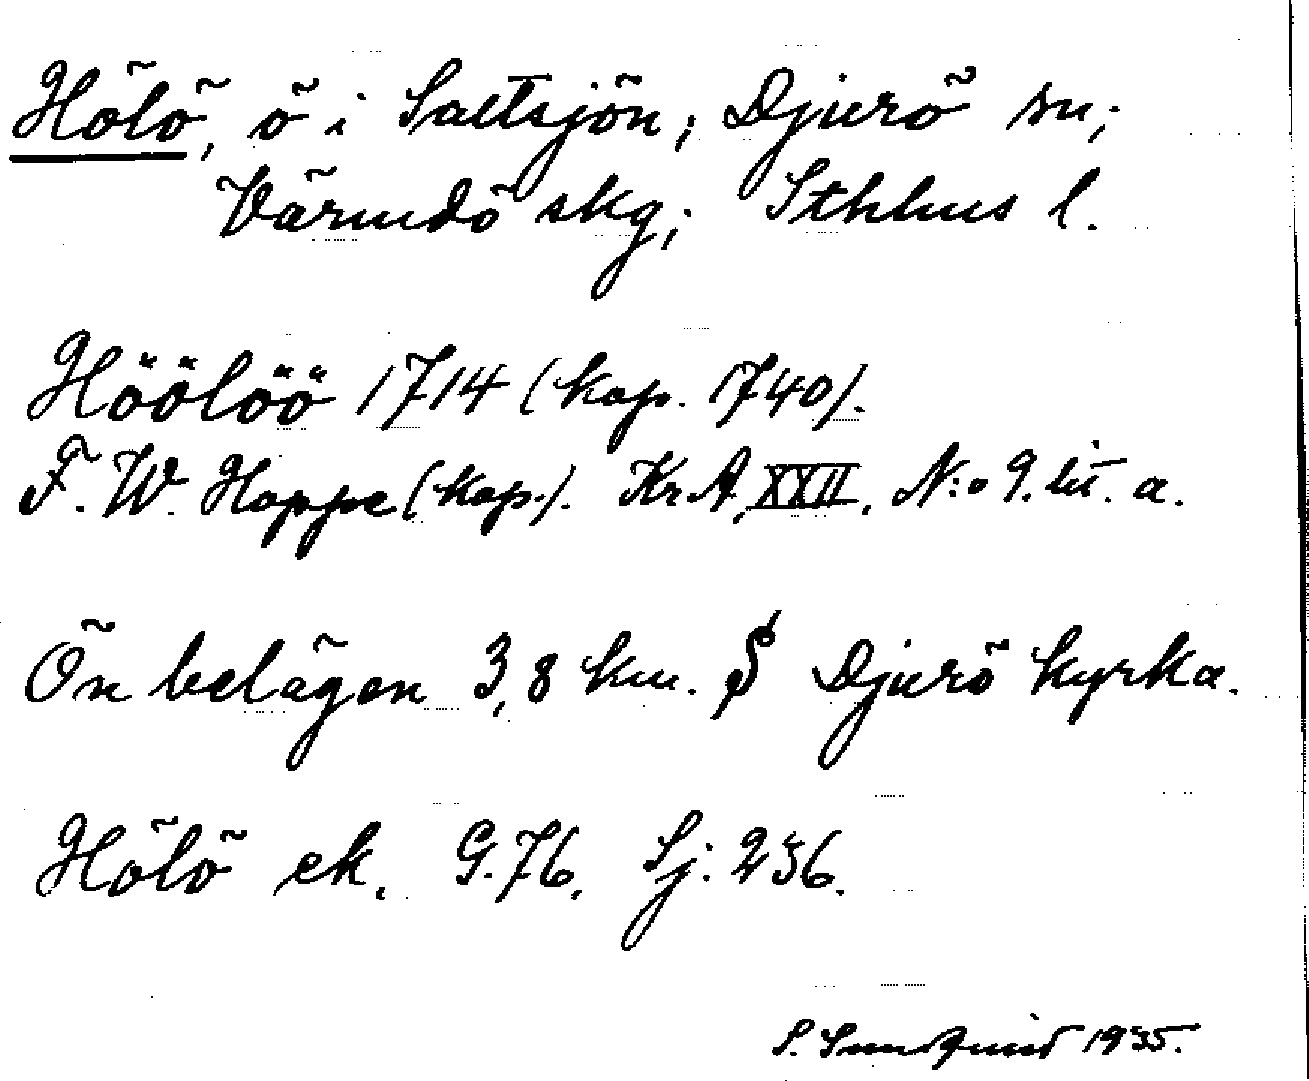 Hölö, ö i Saltsjön; Djurö sn;
Värmdö skg; Sthlms l.
Höölöö 1714 (kop. 1740).
F. W. Hoppe (kop.). Kr.A. XXII. N:o 9. lit. a.
Ön belägen 3,8 km. S Djurö kyrka.
Hölö ek. G. 76. Sj: 236.
S. 1935.